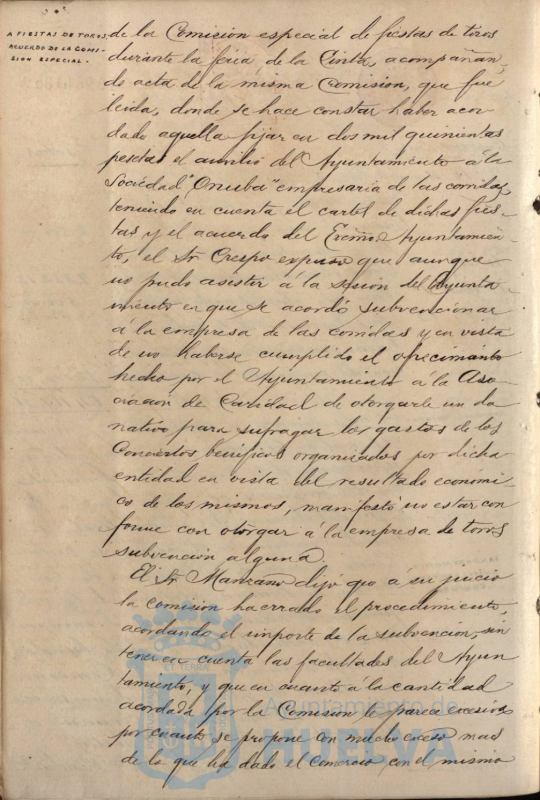 A FIESTAS DE TOROS,
ACUERDO DE LA COMI-
SION ESPECIAL.-
de la Comisión especial de fiestas de toros
durante la feria de la Cinta, acompañan-
do acta de la misma Comision, que fué
leida, donde se hace constar haber acor-
dado aquella fijar en dos mil quinientas
pesetas el auxilio del Ayuntamiento á la
Sociedad "Onuba" empresaria de las corridas,
teniendo en cuenta el cartel de dichas fies-
tas y el acuerdo del Excmo. Ayuntamien-
to, el Sr Crespo expuso que aunque
no pudo asistir á la sesion del Ayunta-
miento en que se acordó subvencionar
a la empresa de las corridas y en vista
de no haberse cumplido el ofrecimiento
hecho por el Ayuntamiento a la Aso-
ciacion de Caridad de otorgarle un do
nativo para sufragar los gastos de los
Conciertos beneficos organizados por dicha
entidad en vista del resultado económi
co de los mismos, manifestó no estar con
forme con otorgar á la empresa de toros
subvención alguna.
El Sr Manzano dijo que a su juicio
la comision ha errado el procedimiento,
acordando el importe de la subvencion, sin
tener en cuenta las facultades del Ayun
tamiento, y que en cuanto á la cantidad
acordada por la Comision le parece excesiva
por cuanto se propone con mucho exceso mas
de lo que ha dado el Comercio con el mismo
Ayuntamiento de
HUELVA